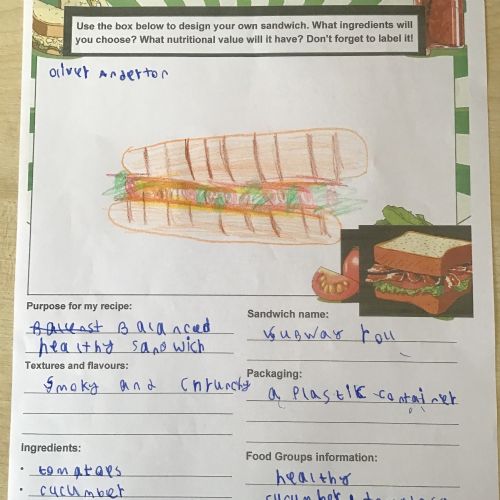 Use the box below to design your own sandwich. What ingredients will
you choose? What nutritional value will it have? Don't forget to label it!
Oliver Anderton
Purpose for my recipe:
Balanced
healthy sandwich
Sandwich name:
subway roll
Textures and flavours:
smoky and chrunchy
Packaging:
a plastik container
Ingredients:
• tomatoes
• cucumber
Food Groups information:
healthy
cucumber